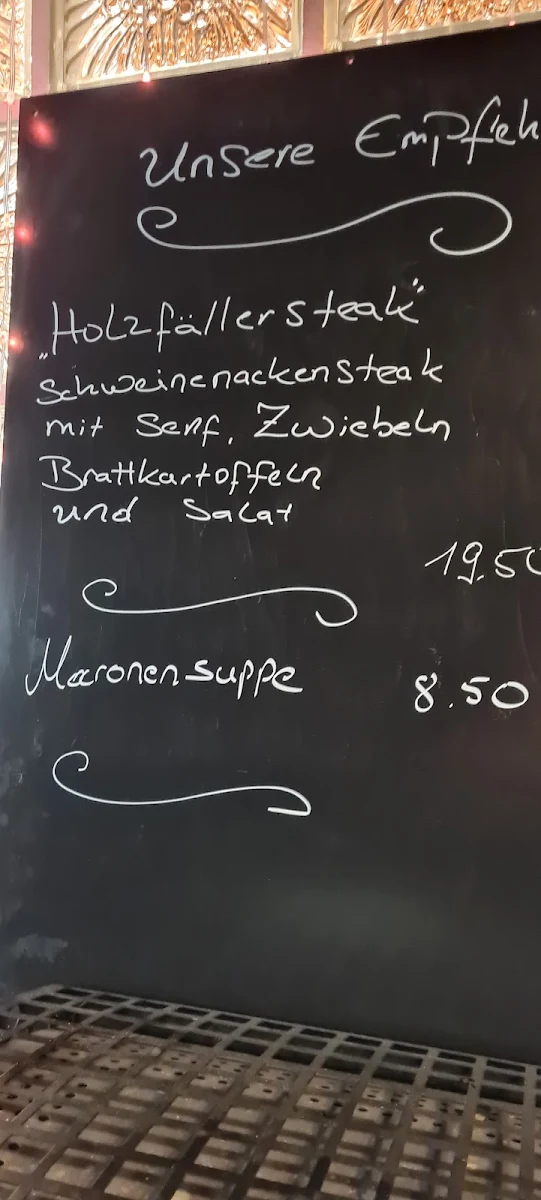 Unsere Empfeh
„Holzfällersteak"
Schweinenackensteak
mit Senf, Zwiebeln
Brattkartoffeln
und Salat
19.50
Maronensuppe 8.50